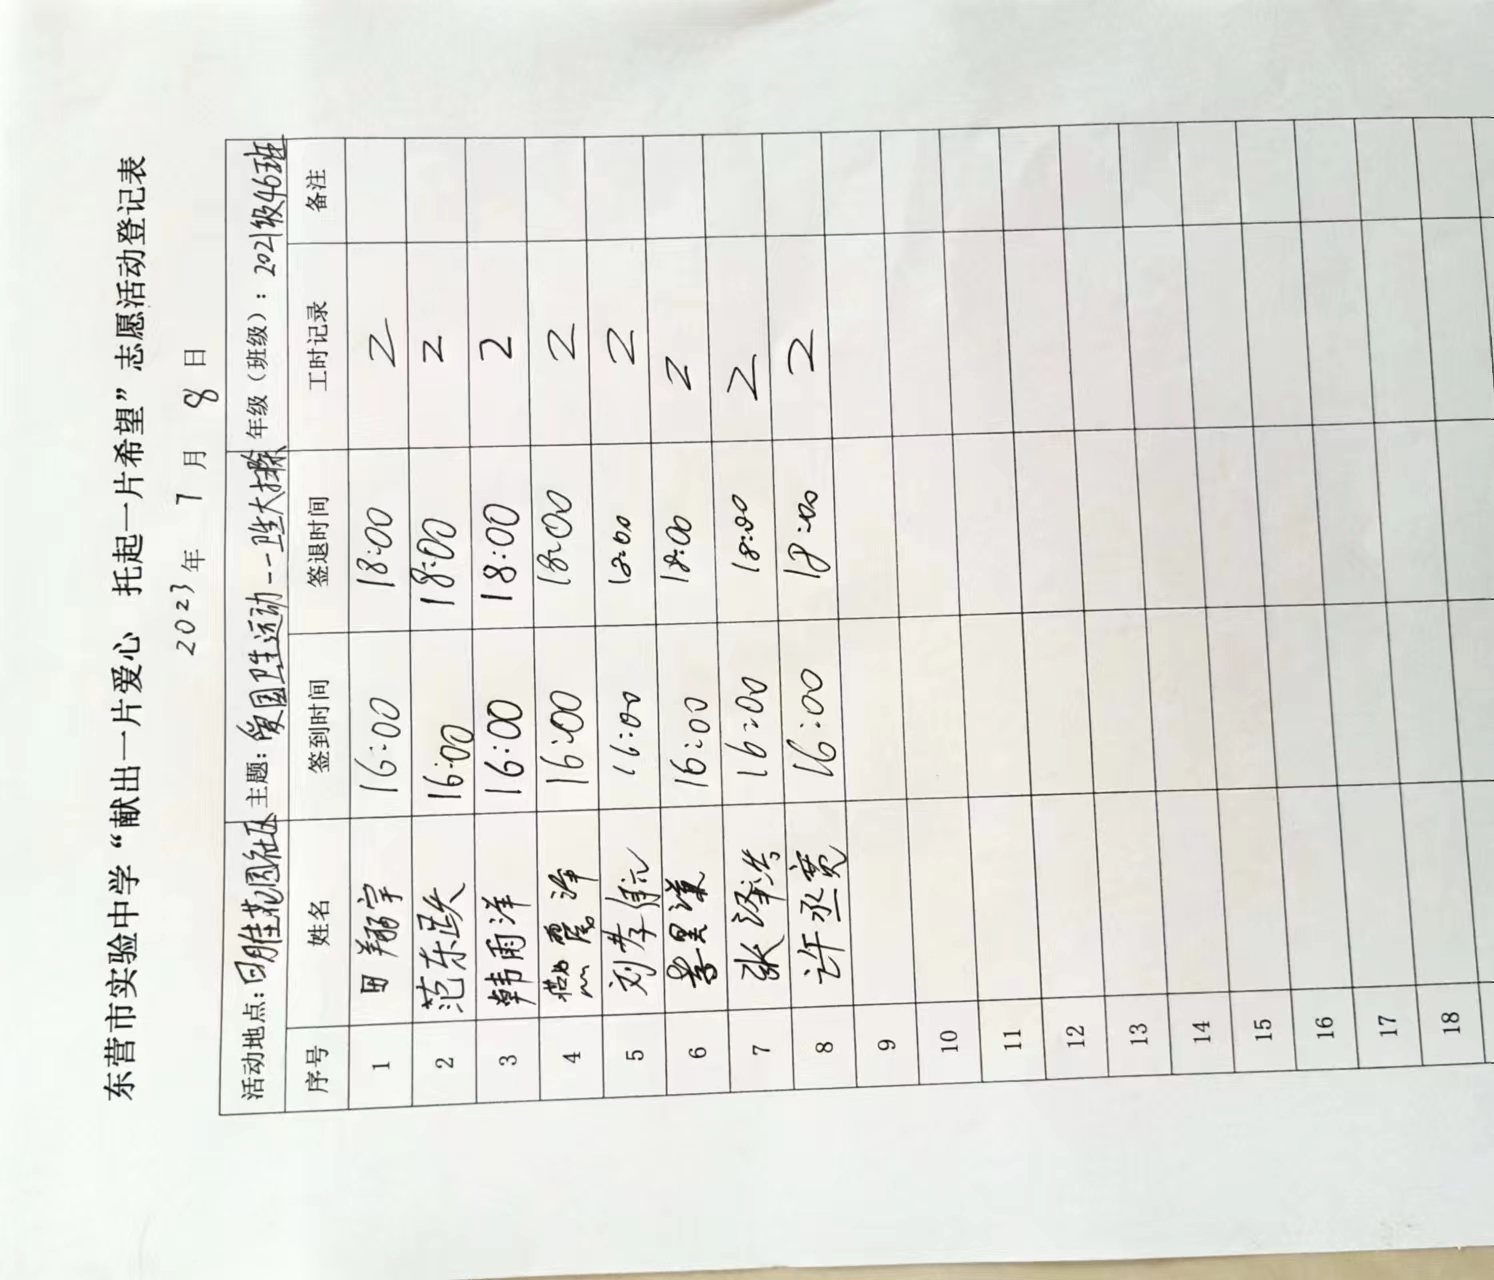 东营市实验中学“献出一片爱心 托起一片希望”志愿活动登记表
2023年 7月 8日
活动地点：明雅花园社区 主题：爱国卫生运动--卫生大扫除 年级（班级）：2021级46班
序号 姓名 签到时间 签退时间 工时记录 备注
1 田翔宇 16:00 18:00 2
2 范东跃 16:00 18:00 2
3 韩雨洋 16:00 18:00 2
4 燕 16:00 18:00 2
5 刘孝 16:00 18:00 2
6 16:00 18:00 2
7 张泽浩 16:00 18:00 2
8 许丞宽 16:00 18:00 2
9
10
11
12
13
14
15
16
17
18